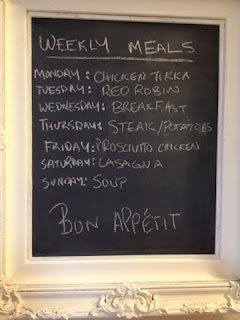 WEEKLY MEALS
MONDAY: CHICKEN TIKKA
TUESDAY: RED ROBIN
WEDNESDAY: BREAKFAST
THURSDAY: STEAK/POTATOES
FRIDAY: PROSCIUTTO CHICKEN
SATURDAY: LASAGNA
SUNDAY: SOUP
BON APPÉTIT